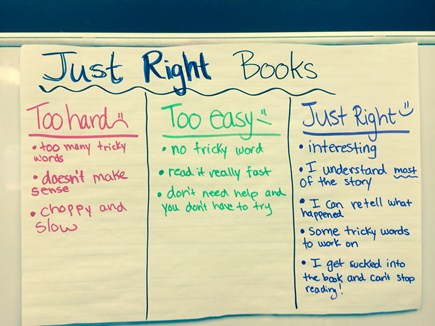 Just Right Books
Too hard
• too many tricky
words
• doesn't make
sense
• choppy and
slow
Too easy
• no tricky word
• read it really fast
• don't need help and
you don't have to try
Just Right
• interesting
• I understand most
of the story
• I can retell what
happened
• Some tricky words
to work on
• I get sucked into
the book and can't stop
reading!